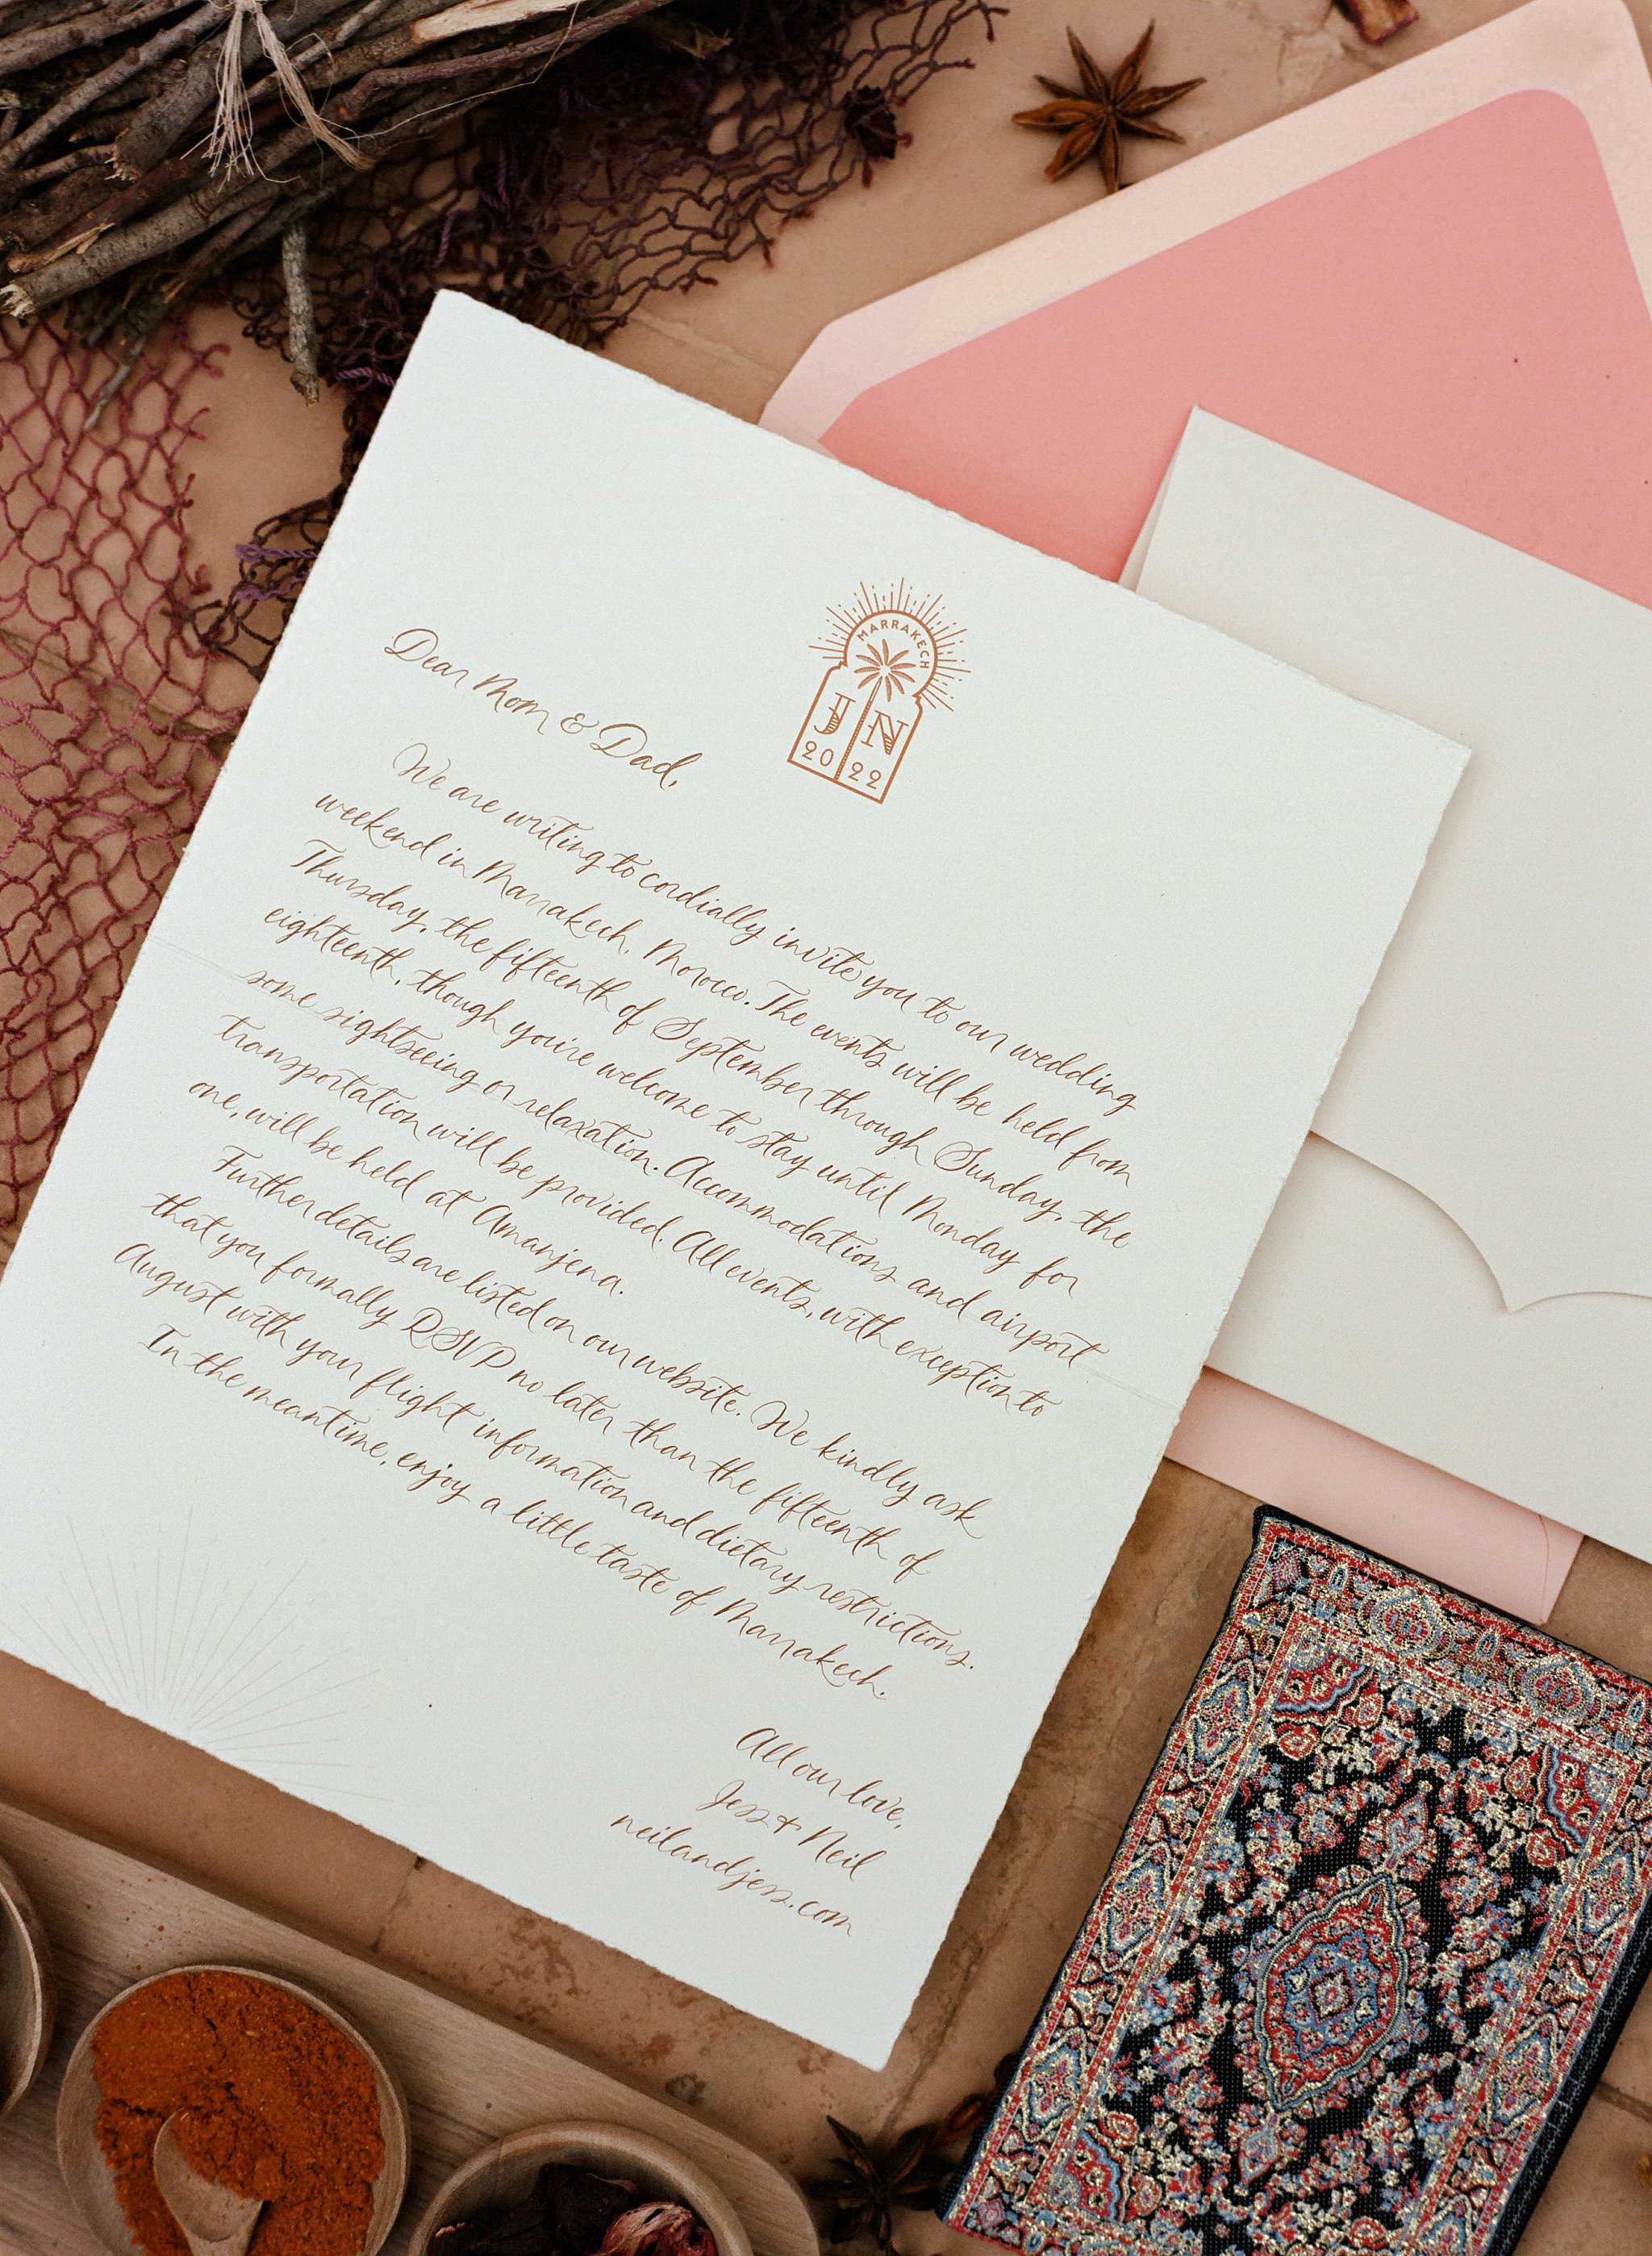 MARRAKECH
J N
20 22
Dear Mom & Dad,
We are writing to cordially invite you to our wedding
weekend in Marrakech, Morocco. The events will be held from
Thursday, the fifteenth of September through Sunday, the
eighteenth, though you're welcome to stay until Monday for
some sightseeing or relaxation. Accommodations and airport
transportation will be provided. All events, with exception to
one, will be held at Amanjena.
Further details are listed on our website. We kindly ask
that you formally RSVP no later than the fifteenth of
August with your flight information and dietary restrictions.
In the meantime, enjoy a little taste of Marrakech.
All our love,
Jess & Neil
neilandjess.com